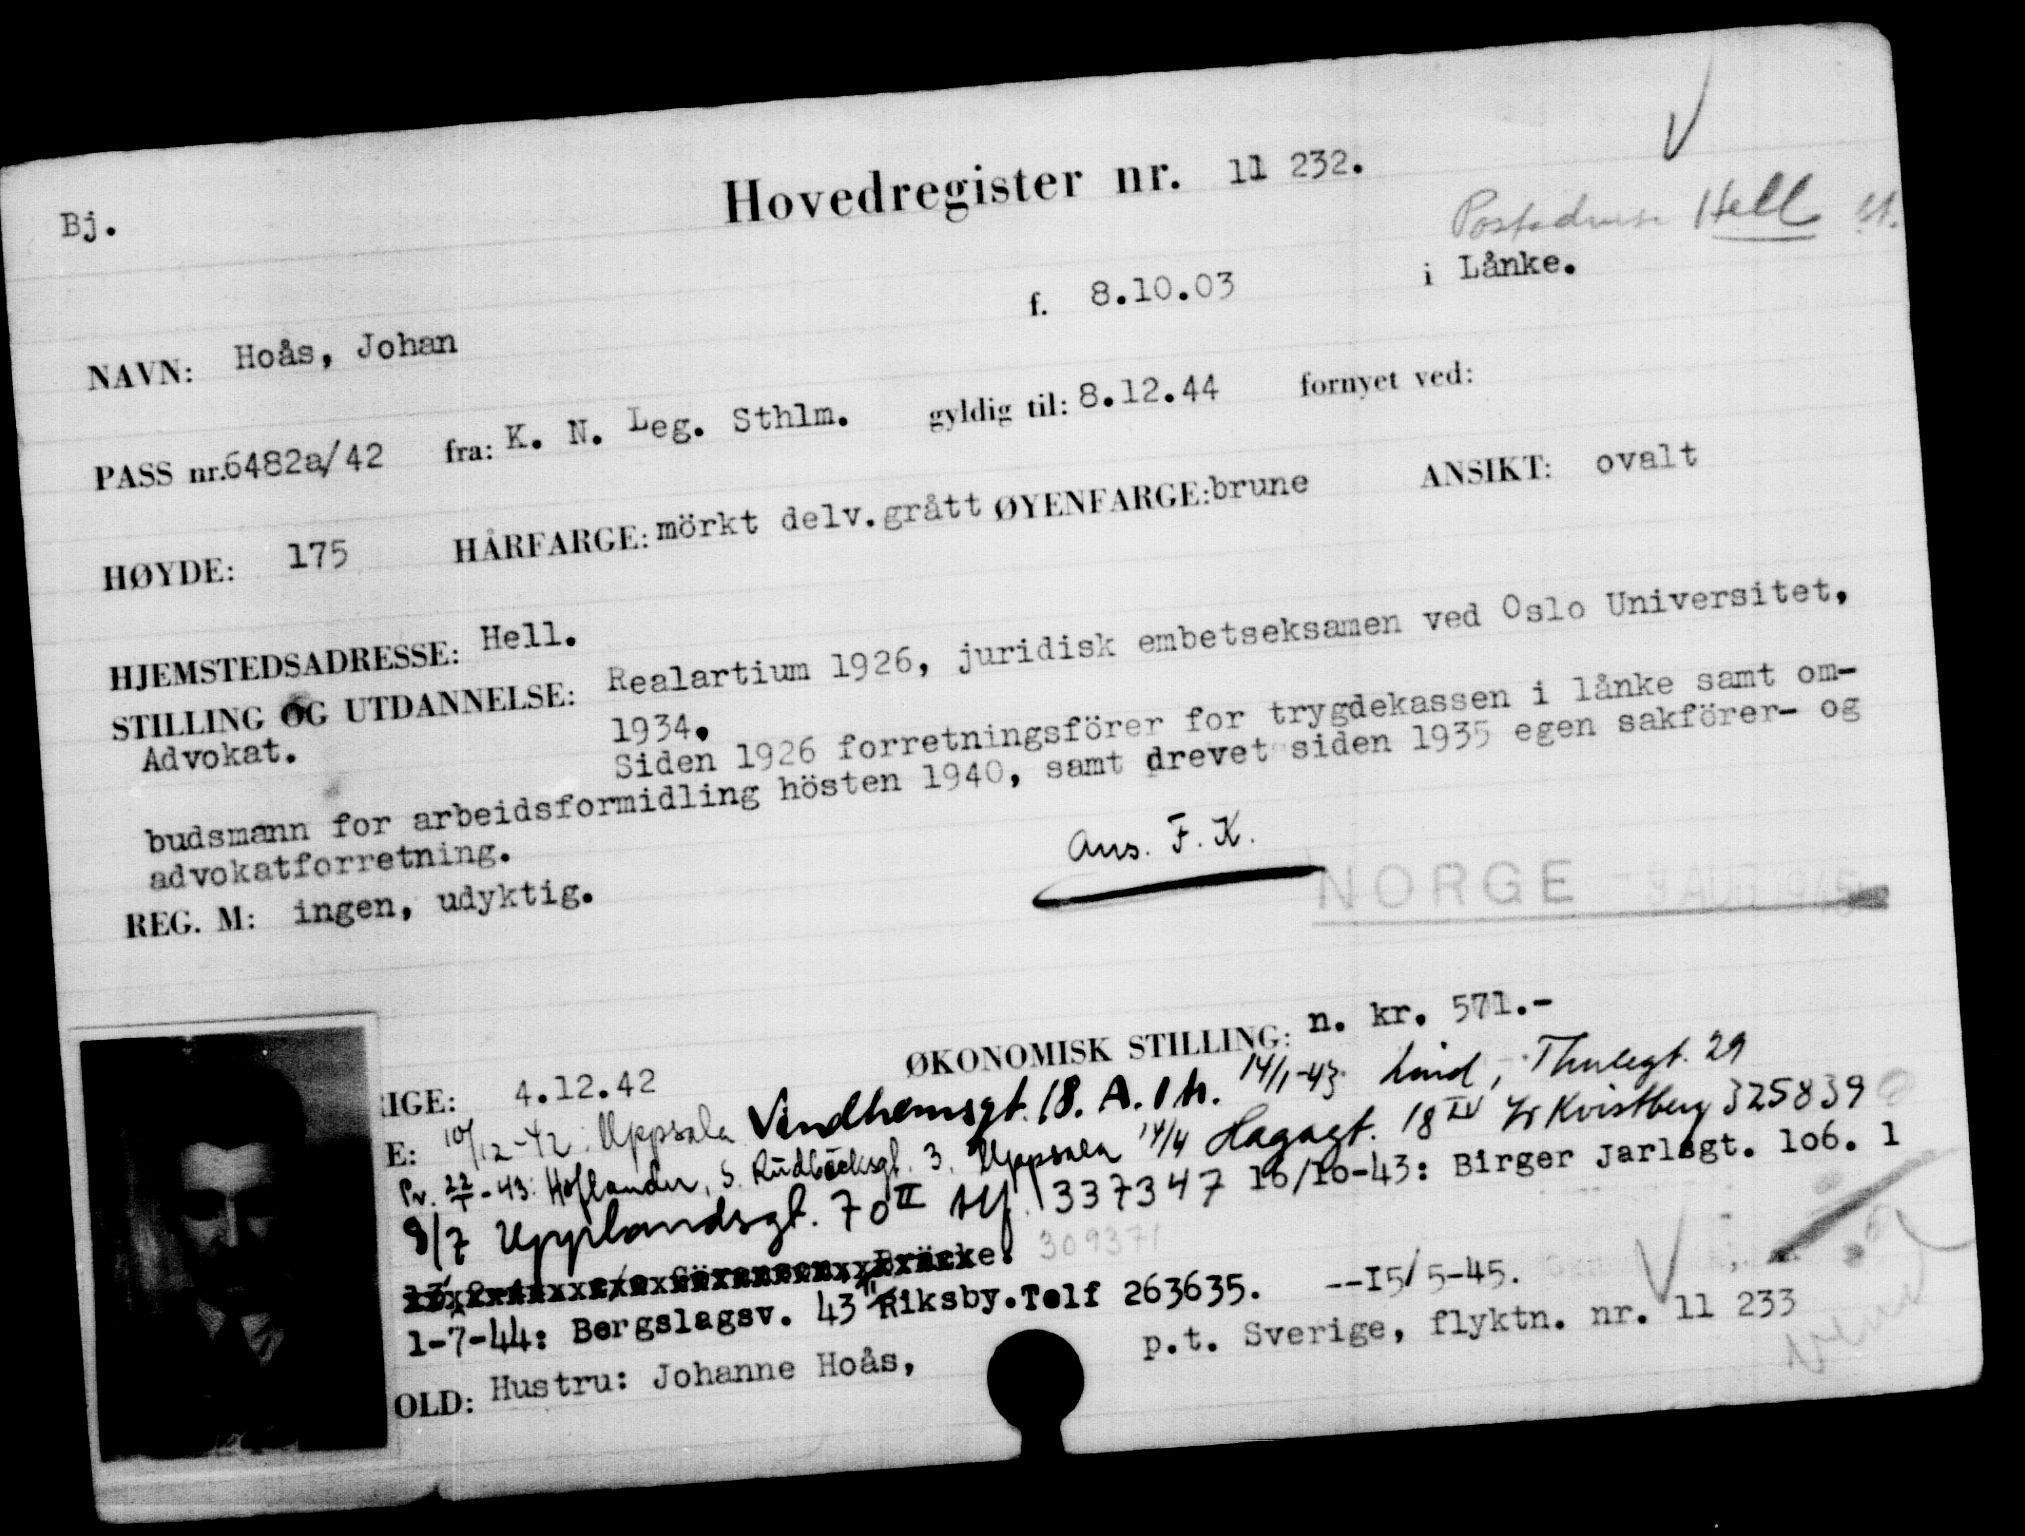 Bj.
Hovedregister nr. 11 232.
Postadresse Hell st.
NAVN: Hoås, Johan f. 8.10.03 i Lånke.
PASS nr. 6482a/42 fra: K. N. Leg. Sthlm. gyldig til: 8.12.44 fornyet ved:
HØYDE: 175 HÅRFARGE: mörkt delv.grått ØYENFARGE: brune ANSIKT: ovalt
HJEMSTEDSADRESSE: Hell.
STILLING OG UTDANNELSE: Realartium 1926, juridisk embetseksamen ved Oslo Universitet,
1934.
Advokat. Siden 1926 forretningsförer for trygdekassen i lånke samt om-
budsmann for arbeidsformidling hösten 1940, samt drevet siden 1935 egen sakförer- og
advokatforretning.
REG. M: ingen, udyktig.
Ans. F. K.
NORGE - 9 AUG 1945
IGE: 4.12.42 ØKONOMISK STILLING: n. kr. 571.-
E: 10/12-42: Uppsala Vindhemsgt. 18. A. 1 h. 14/1-43: Lind, Thulegt. 29
Pr. 22/1-43: Hoflander, S. Rudbecksgt. 3. Uppsala 14/4 Hagagt. 18 IV Kvistberg 325839
9/7 Upplandsgt. 70 II tlf. 337347 16/10-43: Birger Jarlsgt. 106. 1
Bräcke. 309371
1-7-44: Bergslagsv. 43 II Riksby. Telf 263635. --15/5-45.
OLD: Hustru: Johanne Hoås, p.t. Sverige, flyktn. nr. 11 233